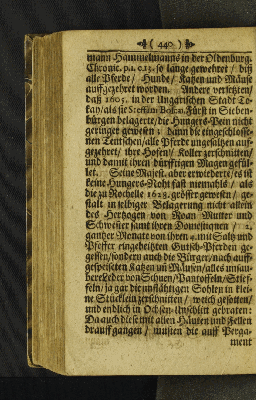 ( 440 )
mann Hammelmanns in der Oldenburg.
Chronic. p.1. 0.13. so lange gewehret / biß
alle Pferde / Hunde / Katzen und Mäuse
auffgezehret worden. Andere versetzen /
daß 1605. in der Ungarischen Stadt To-
kay / als sie Steffan Fürst in Sieben-
bürgen belagerte / die Hungers-Pein nicht
geringer gewesen: dann die eingeschlosse-
nen Teutschen / alle Pferde ungesaltzen auff-
gezehret / ihre Hosen / Koller zerschnitten /
und damit ihren dürfftigen Magen gefül-
let. Seine Majest. aber erwiederte / es ist
keine Hungers-Noht fast niemahls / als
die zu Rochelle 1628. grösser gewesen / ge-
stalt in selbiger Belagerung nicht allein
des Hertzogen von Roan Mutter und
Schwester samt ihren Domestiquen / 2.
gantzer Monate von ihren 4. mit Saltz und
Pfeffer eingebeitzten Gutsch-Pferden ge-
gessen / sondern auch die Bürger / nach auff-
gespeiseten Katzen und Mäusen / alles unsau-
bere Leder von Schuen / Pantoffeln / Stief-
feln / ja gar die unflähtigen Sohlen in klei-
ne Stücklein zerschnitten / weich gesotten /
und endlich in Ochsen-Unschlitt gebraten:
Da auch diese mit allen Häuten und Fellen
drauff gangen / musten die auff Perga-
ment